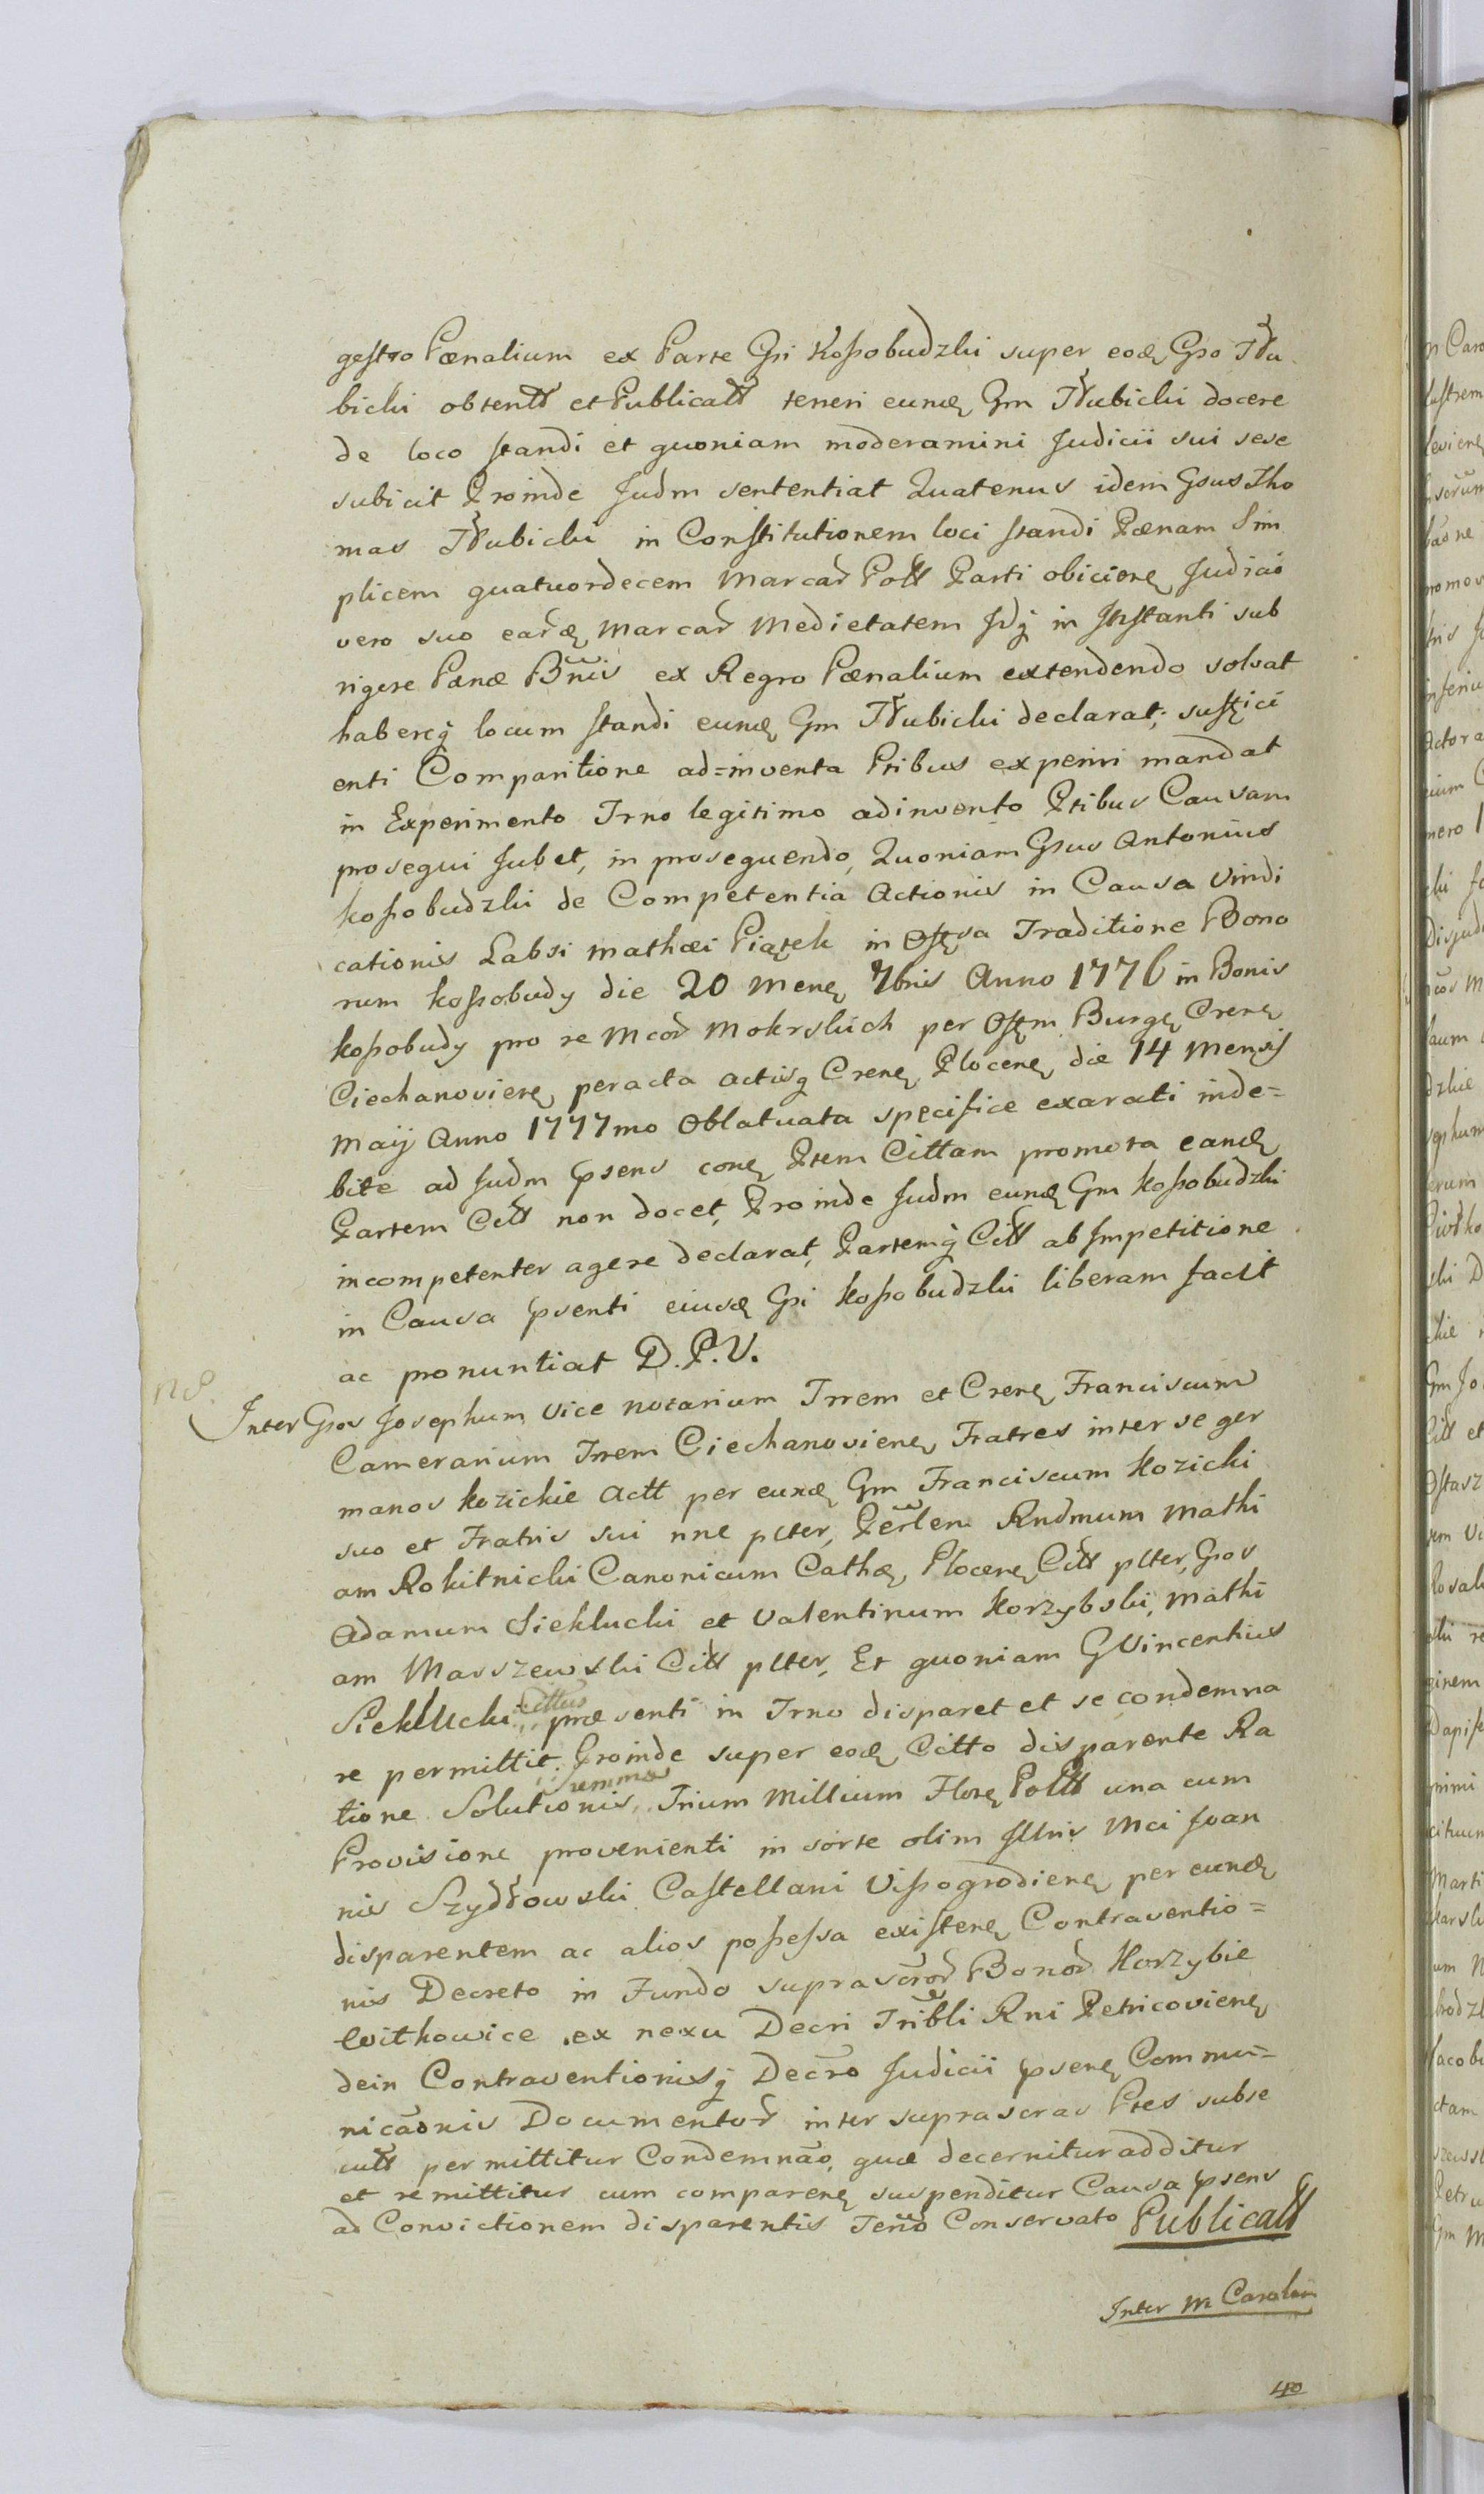 gestro Pœnalium ex Parte Gsi Kossobudzki super eodę Gso Dłu
bicki obtentt et Publicatt teneri eundę Gm Dłubicki docere
de loco standi et quoniam moderamini Judicii sui sese
subicit Proinde Judm sententiat Quatenus idem Gsus Tho
mas Dłubicki in Constitutionem loci standi Pœnam Sim
plicem quatuordecem Marcar Pott Parti obicienę Judicio
vero suo eardę Marcar Medietatem Idq in Instanti sub
rigore Pænæ Bnis ex Regro Pœnalium extendendo solvat
habereq locum standi eundę Gm Dłubicki declarat; suffici
enti Comparitione ad=inventa Ptibus experiri mandat
in Experimento Trno legitimo adinvento Ptibus Causam
prosequi Jubet, in prosequendo, Quoniam Gsus Antonius
Kossobudzki de Competentia Actionis in Causa Vindi
cationis Labsi Mathæi Piątek in Offsa Traditione Bono
rum Kossobudy die 20 Menę 7bris Anno 1776 in Bonis
Kossobudy pro re Mcor Mokrskich per Offm Burgę Crenę
Ciechanovienę peracta actisq Crenę Plocenę die 14 Mensis
Maij Anno 1777mo Oblatuata specifice exarati inde=
bite ad Judm psens conę Ptem Cittam promota eandę
Partem Citt non docet, Proinde Judm eundę Gm Kossobudzki
incompetenter agere declarat, Partemq Citt ab Impetitione
in Causa psenti eiusdę Gsi Kossobudzki liberam facit
ac pronuntiat D. P. V.
n 8.
Inter Gsos Josephum Vice Notarium Trrem et Crenę Franciscum
Camerarium Trrem Ciechanovienę Fratres inter se ger
manos Kozickie Actt per eundę Gm Franciscum Kozicki
suo et Fratris sui nne plter, Perlem Rndmum Mathi
am Rokitnicki Canonicum Cathę Plocenę Citt plter, Gsos
Adamum Siekłucki et Valentinum Korzybski, Mathi
am Marszewski Citt plter, Et quoniam G Vincentius
Siekłucki Cittus præsenti in Trno disparet et se condemna
re permittit. Proinde super eodę Citto disparente Ra
tione Solutionis Summæ Trium Millium Florę Pott una cum
Provisione provenienti in sorte olim Illris Mci Joan
nis Szydłowski Castellani Vissogrodienę per eundę
disparentem ac alios possessa existenę Contraventio=
nis Decreto in Fundo suprascror Bonor Korzybie
Witkowice ex nexu Decri Tribli Rni Petricovienę
dein Contraventionisq Decro Judicii psenę Commu=
nicaonis Documentor inter suprascras Ptes subse
cutt permittitur Condemnao, quæ decernitur additur
et remittitur cum comparenę suspenditur Causa psens
ad Convictionem disparentis Terno Conservato Publicatt
Inter M Carolum
40